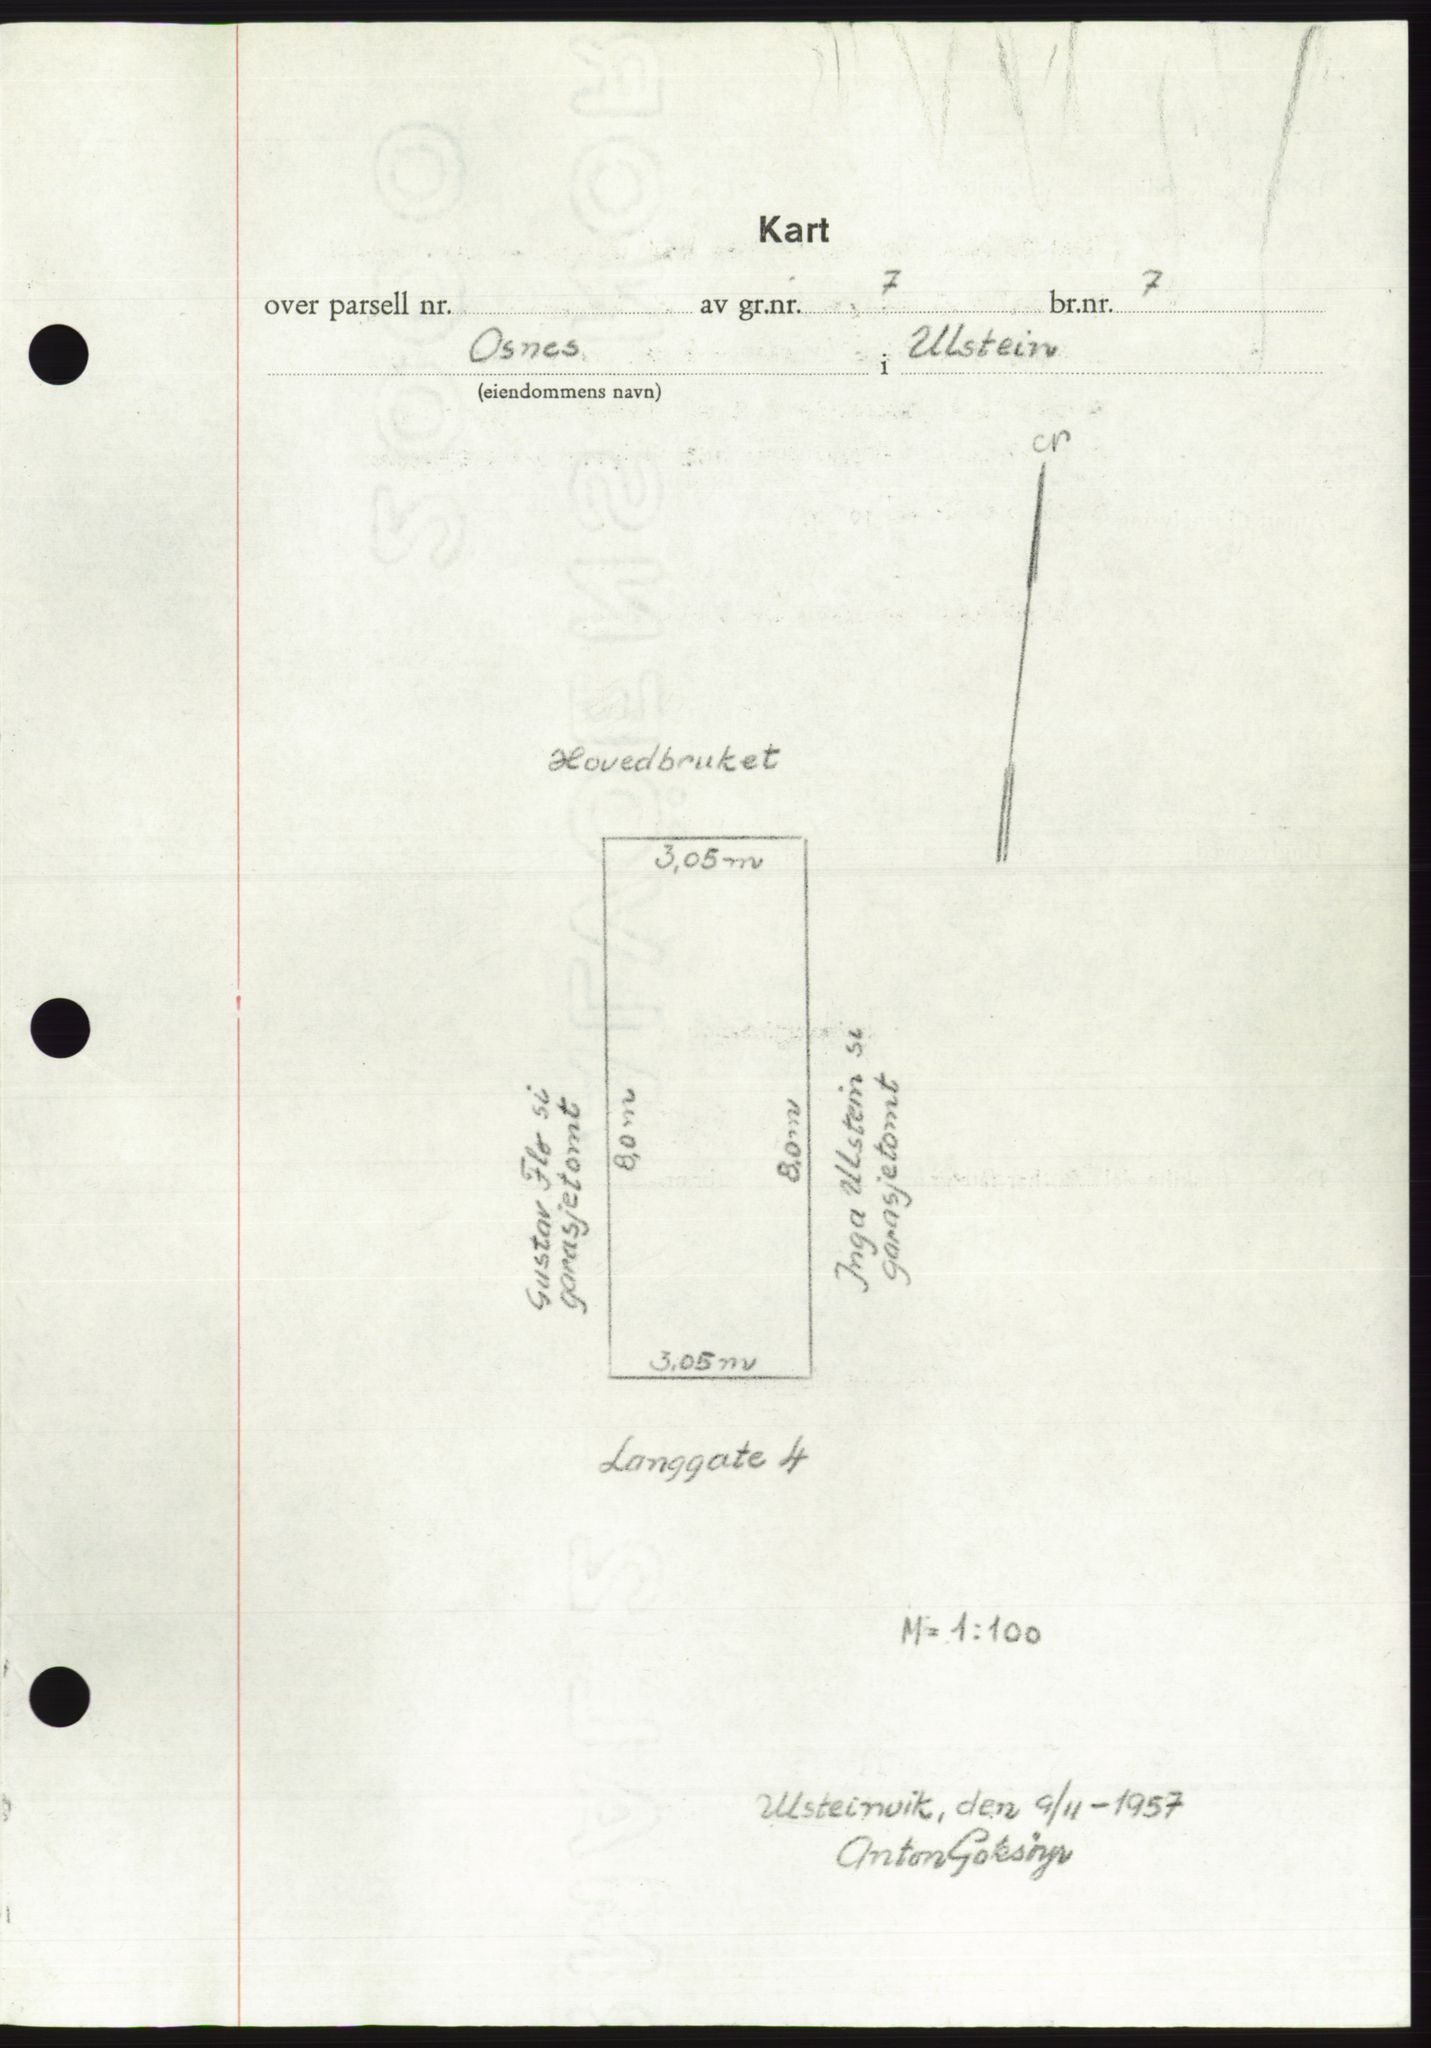 Kart
over parsell nr. av gr.nr. 7 br.nr. 7
Osnes i Ulstein
(eiendommens navn)
Hovedbruket
3,05 m
Gustav Flø si
garasjetomt
8,0 m
8,0 m
Inga Ulstein si
garasjetomt
3,05 m
Langgate 4
M = 1:100
Ulsteinvik, den 9/11-1957
Anton Goksöyr